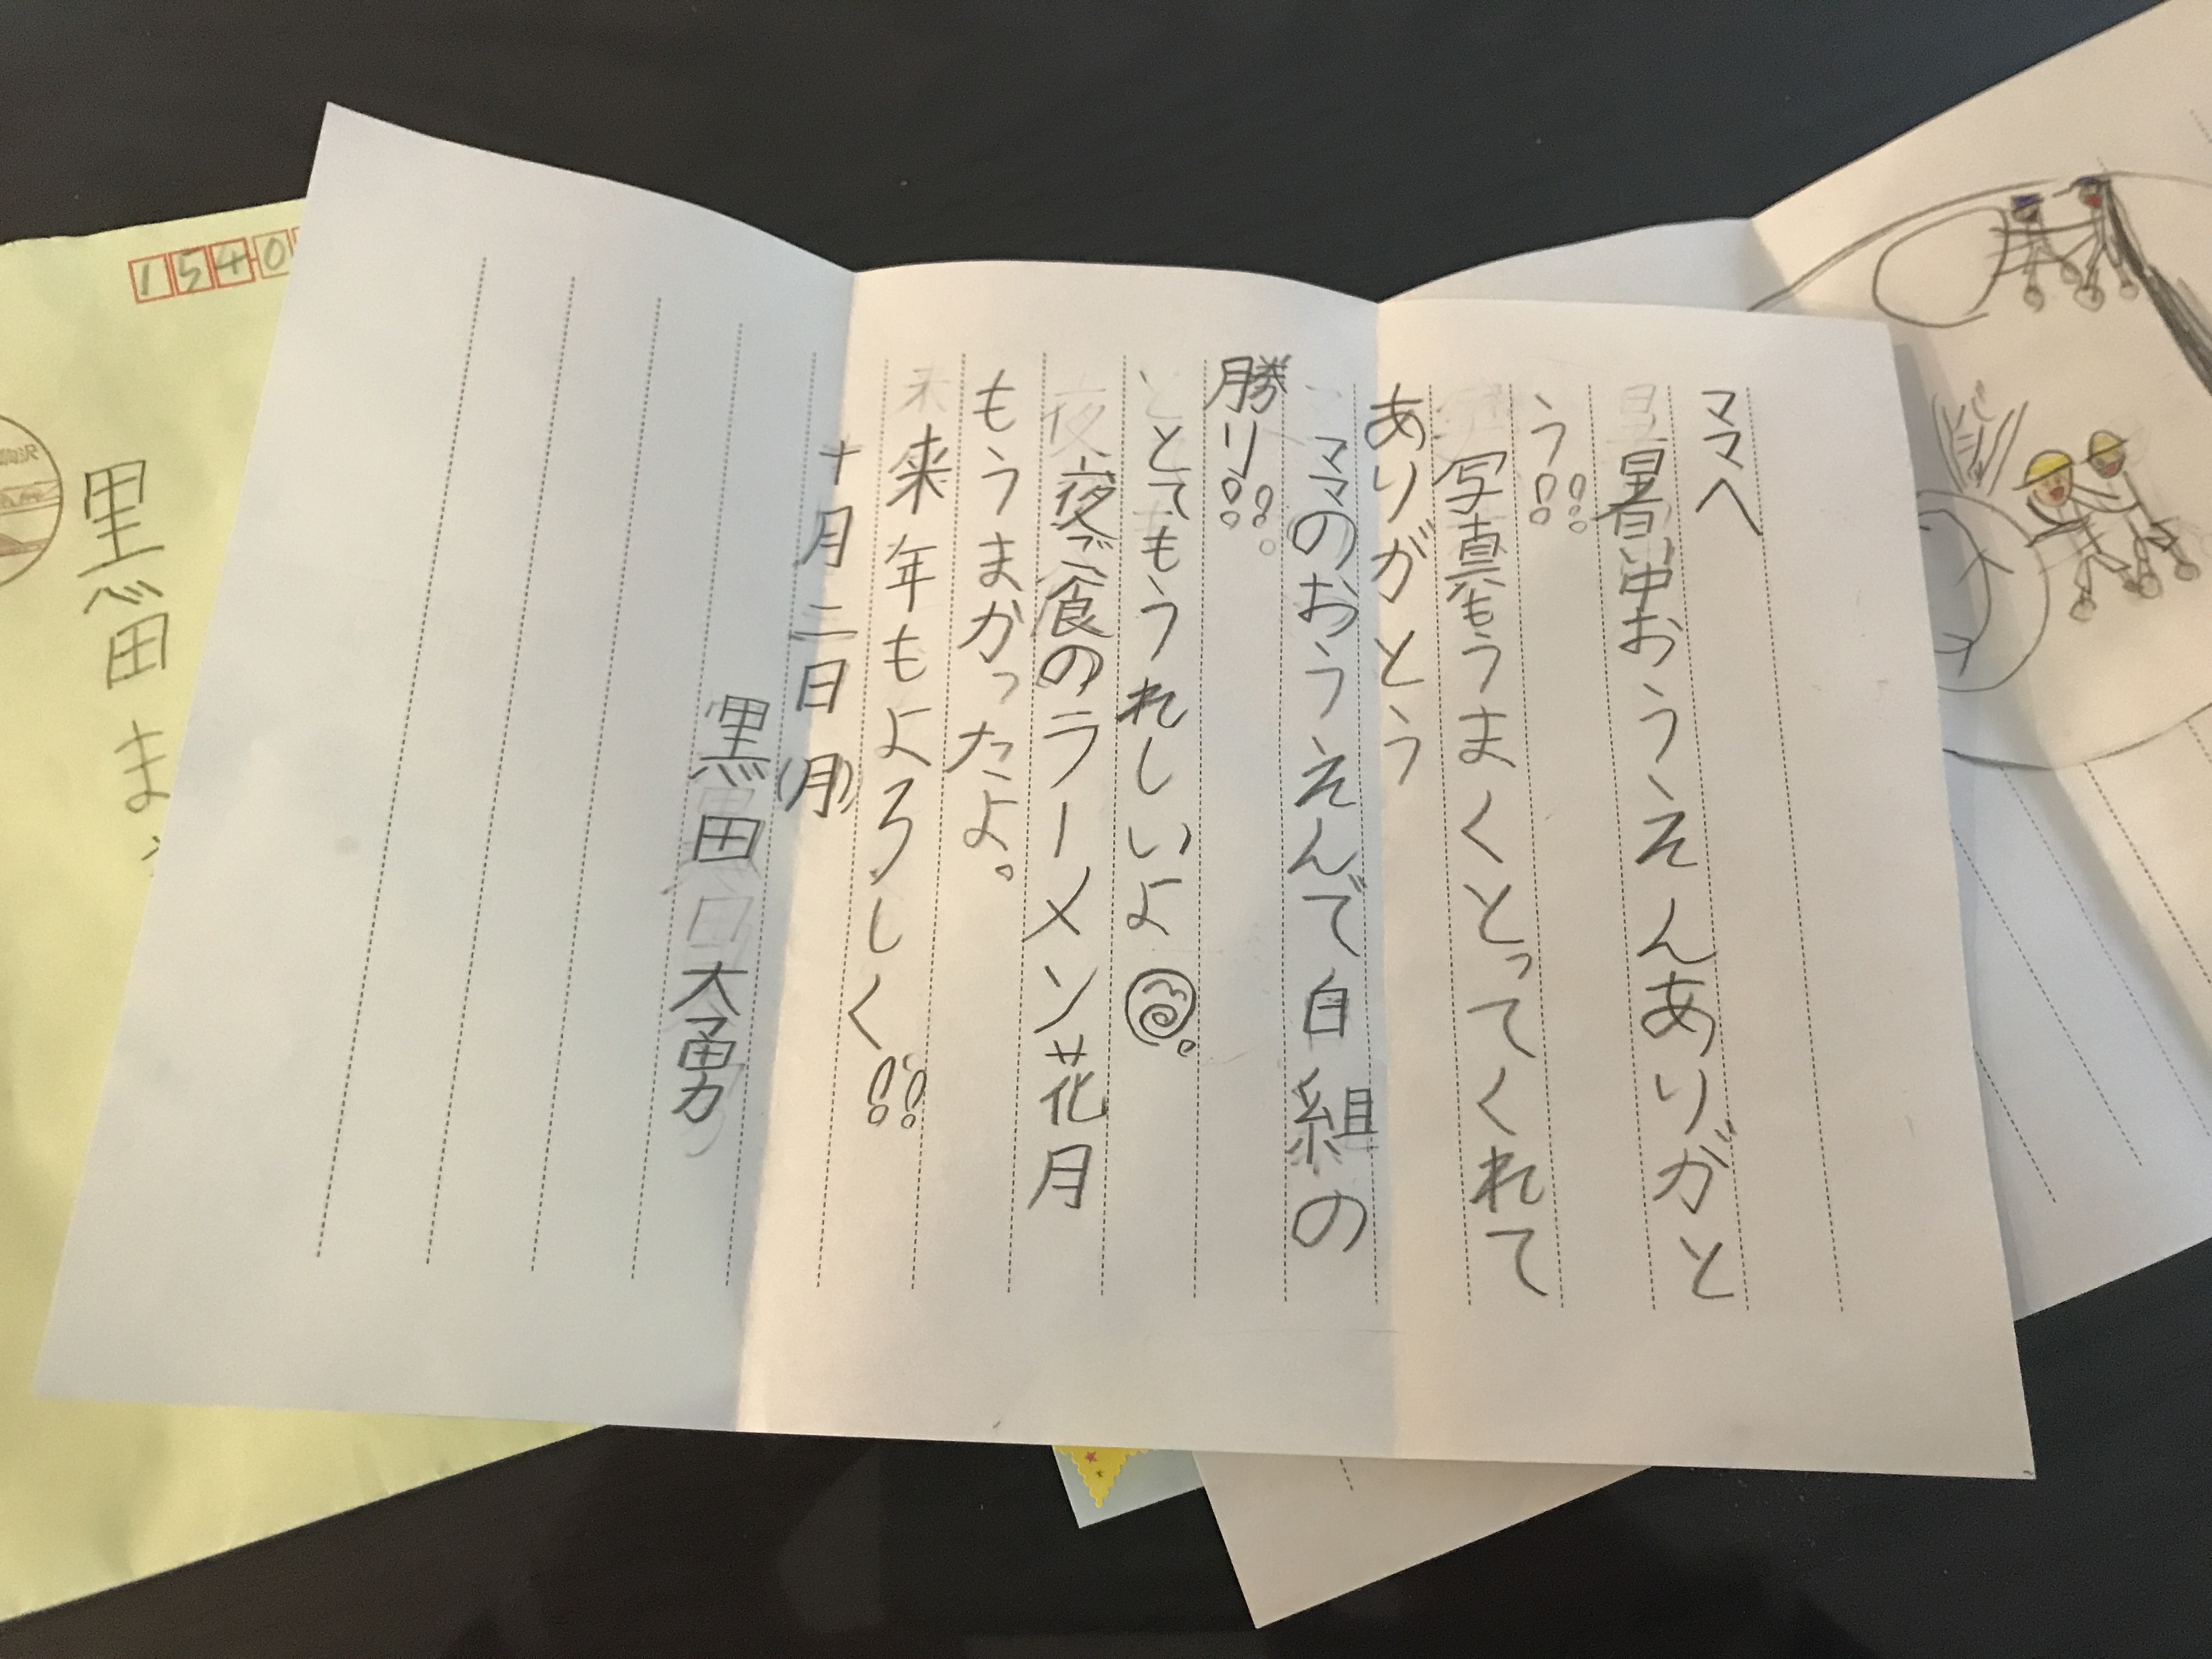 ママへ
暑い中おうえんありがと
う!!
写真もうまくとってくれて
ありがとう
ママのおうえんで白組の
勝り!!
とてもうれしいよ
夜ご飯のラーメン花月
もうまかったよ。
来年もよろしく!!
十月二日(月)
黒田大勇
1540
黒田ま